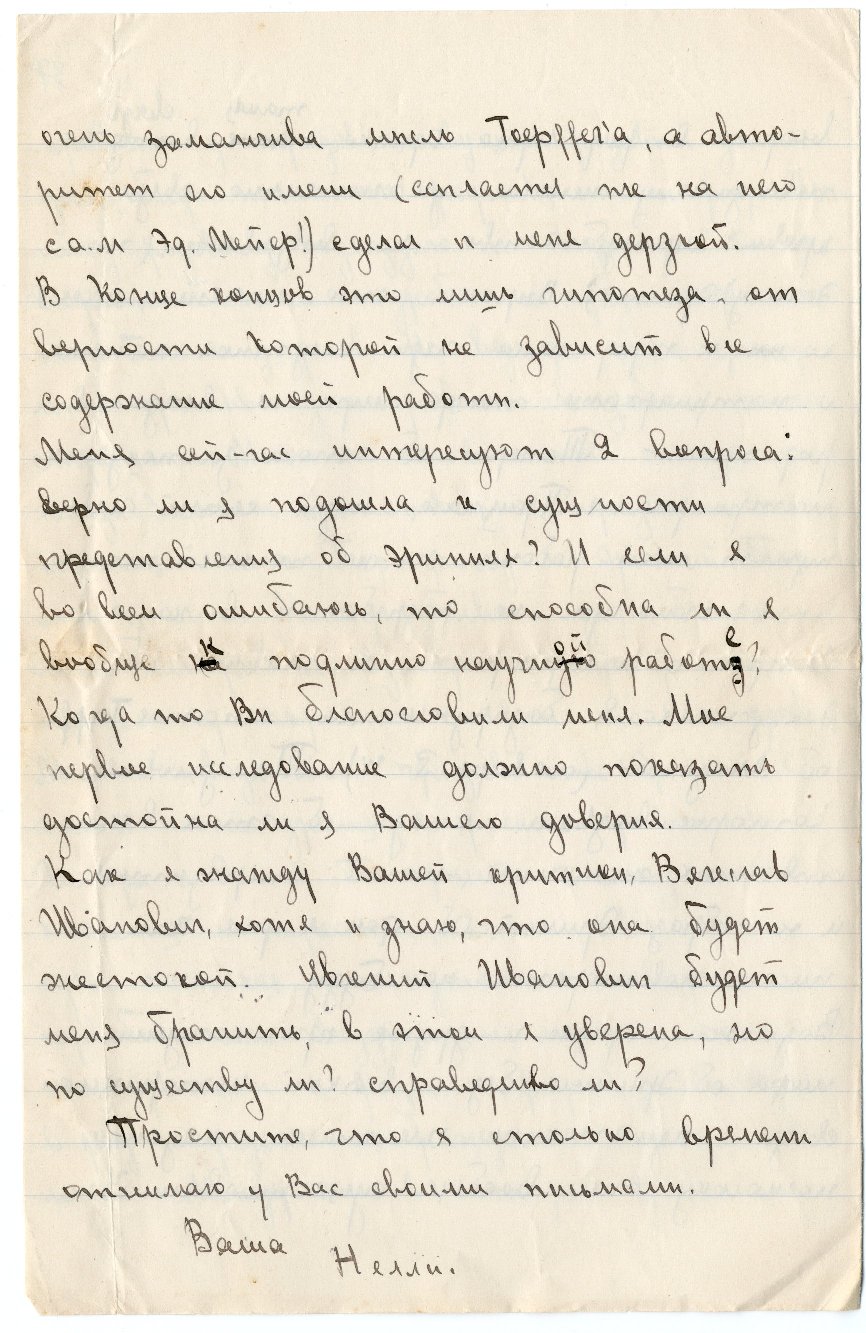 очень заманчива мысль Toepffer'a, а авто-
ритет его имени (ссылается же на него
сам Эд. Мейер!) сделал и меня дерзкой.
В конце концов это лишь гипотеза, от
верности которой не зависит все
содержание моей работы.
Меня сей-час интересуют 2 вопроса:
верно ли я подошла к сущности
представления об эриниях? И если я
во всем ошибаюсь, то способна ли я
вообще к подлинно научной работе?
Когда то Вы благословили меня. Мое
первое исследование должно показать
достойна ли я Вашего доверия.
Как я жажду Вашей критики, Вячеслав
Иванович, хотя и знаю, что она будет
жестокой. Евгений Иванович будет
меня бранить, в этом я уверена, но
по существу ли? справедливо ли?
Простите, что я столько времени
отнимаю у Вас своими письмами.
Ваша
Нелли.